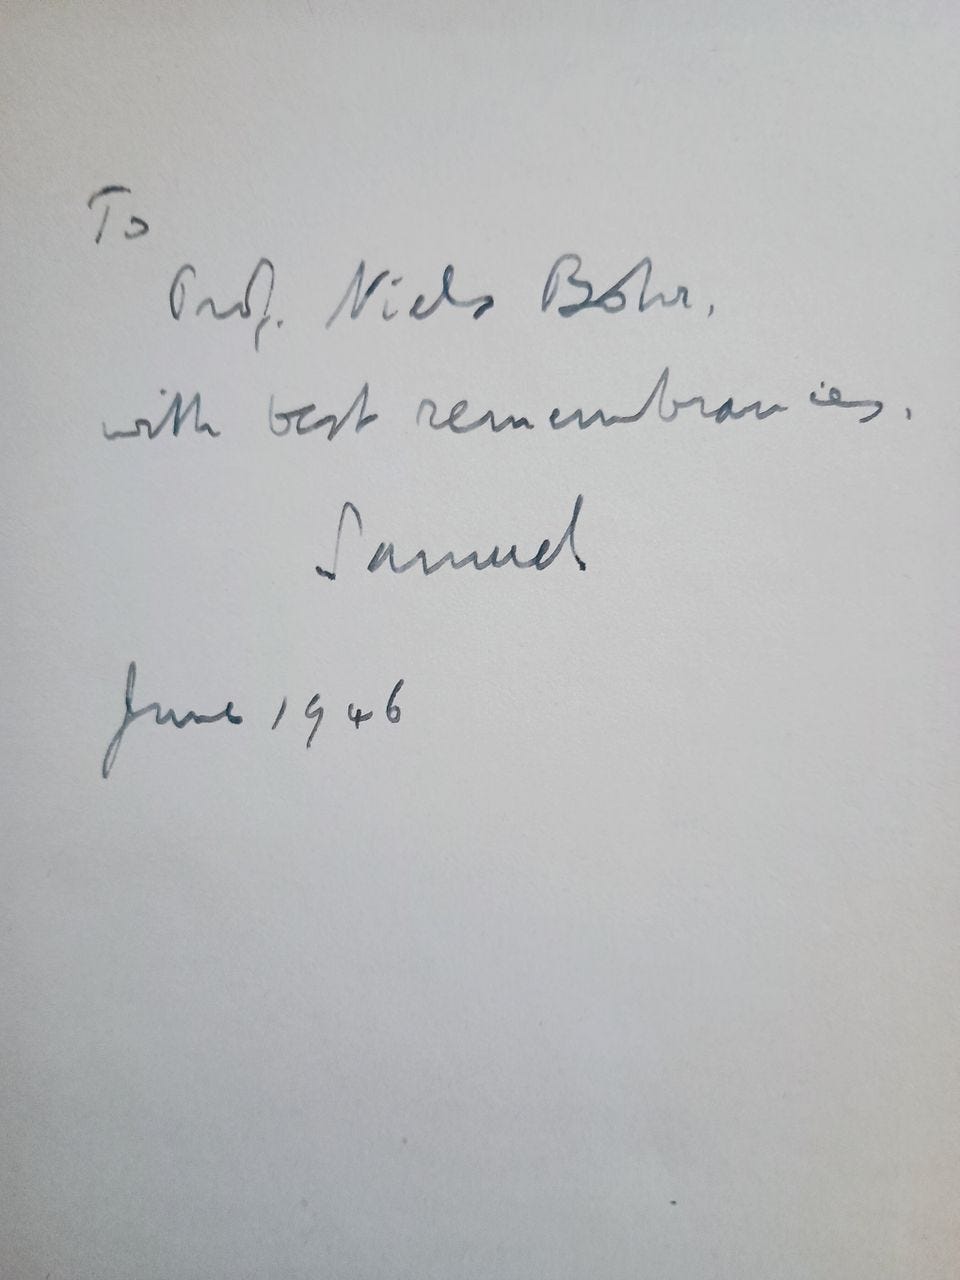 To
Prof. Niels Bohr,
with best remembrances.
Samuel
June 1946